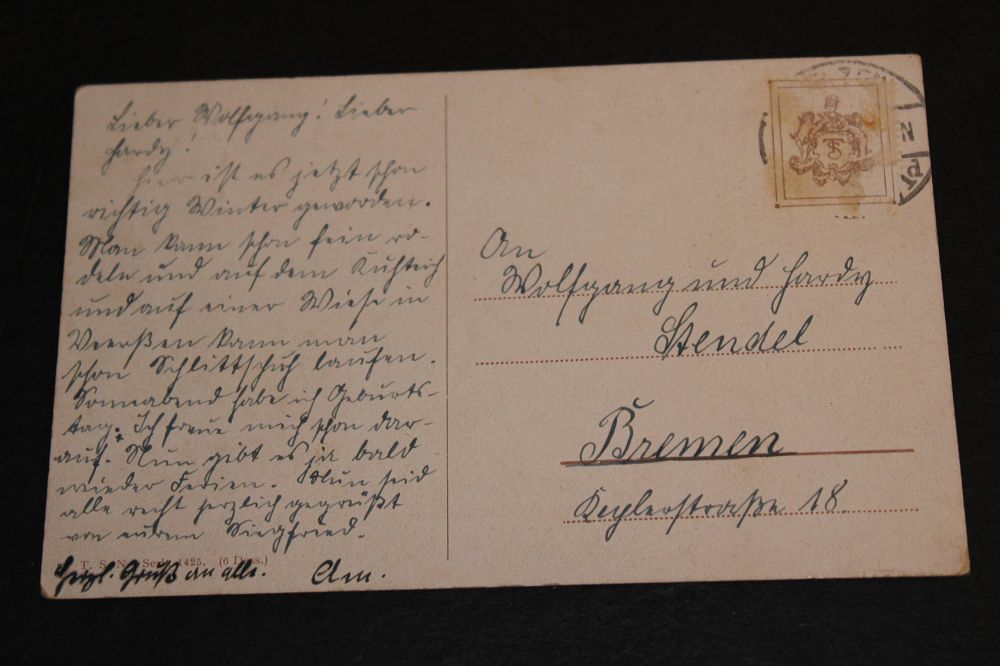 Lieber Wolfgang! Lieber
Hardy!
Hier ist es jetzt schon
richtig Winter geworden.
Man kann schon fein ro-
deln und auf dem Kuhteich
und auf einer Wiese in
Veerßen kann man
schon Schlittschuh laufen.
Sonnabend habe ich Geburts-
tag. Ich freue mich schon dar-
auf. Nun gibt es ja bald
wieder Ferien. Nun seid
alle recht herzlich gegrüßt
von eurem Siegfried.
T. S. N. Serie 1425. (6 Dess.)
Herzl. Gruß an alle.
TS
An
Wolfgang und Hardy
Stendel
Bremen
Keplerstraße 18.